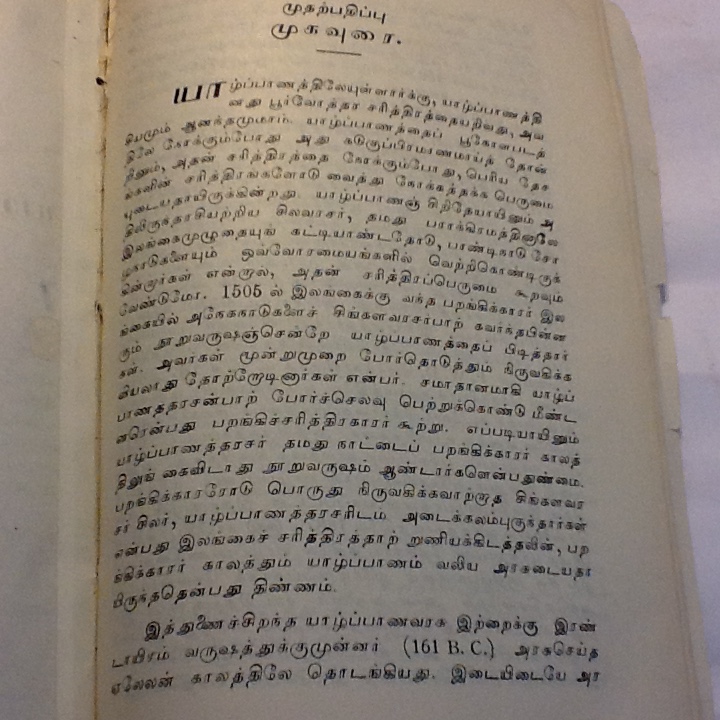 முதற்பதிப்பு
முகவுரை.
யாழ்ப்பாணத்திலேயுள்ளார்க்கு, யாழ்ப்பாணத்தி
னது பூர்வோத்தர சரித்திரத்தையறிவது, அவ
சியமும் ஆனந்தமுமாம். யாழ்ப்பாணத்தைப் பூகோளபடத்
திலே நோக்கும்போது அது கடுகுப்பிரமாணமாய்த் தோன்
றினும், அதன் சரித்திரத்தை நோக்கும்போது, பெரிய தேச
ங்களின் சரித்திரங்களோடு வைத்து நோக்கத்தக்க பெருமை
யுடையதாயிருக்கின்றது. யாழ்ப்பாணஞ் சிறிதேயாயினும் அ
திலிருந்தாசியற்றிய சிலவரசர், தமது பராக்கிரமத்தினாலே
இலங்கைமுழுதையுங் கட்டியாண்டதோடு, பாண்டிநாடு சோ
ழநாடுகளையும் ஒவ்வோரமையங்களில் வெற்றிகொண்டிருக்
கின்றார்கள் என்றால், அதன் சரித்திரப்பெருமை கூறவும்
வேண்டுமோ. 1505 ல் இலங்கைக்கு வந்த பறங்கிக்காரர் இல
ங்கையில் அநேகநாடுகளைச் சிங்களவரசர்பாற் கவர்ந்தபின்ன
ரும் நூறுவருஷஞ்சென்றே யாழ்ப்பாணத்தைப் பிடித்தார்
கள். அவர்கள் மூன்றுமுறை போர்தொடுத்தும் நிருவகிக்க
வியலாது தோற்றோடினார்கள் என்பர். சமாதானமாகி யாழ்ப்
பாணத்தரசன்பாற் போர்ச்செலவு பெற்றுக்கொண்டு மீண்ட
னரென்பது பறங்கிச்சரித்திரகாரர் கூற்று. எப்படியாயினும்
யாழ்ப்பாணத்தரசர் தமது நாட்டைப் பறங்கிக்காரர் காலத்
திலுங் கைவிடாது நூறுவருஷம் ஆண்டார்களென்பதுண்மை.
பறங்கிக்காரரோடு பொருது நிருவகிக்கவாற்றாத சிங்களவர
சர் சிலர், யாழ்ப்பாணத்தரசரிடம் அடைக்கலம்புகுந்தார்கள்
என்பது இலங்கைச் சரித்திரத்தாற் றுணியக்கிடத்தலின், பற
ங்கிக்காரர் காலத்தும் யாழ்ப்பாணம் வலிய அரசுடையதா
யிருந்ததென்பது திண்ணம்.
இத்துணைச்சிறந்த யாழ்ப்பாணவரசு இற்றைக்கு இரண்
டாயிரம் வருஷத்துக்குமுன்னர் (161 B. C.) அரசுசெய்த
ஏலேலன் காலத்திலே தொடங்கியது. இடையிடையே அர